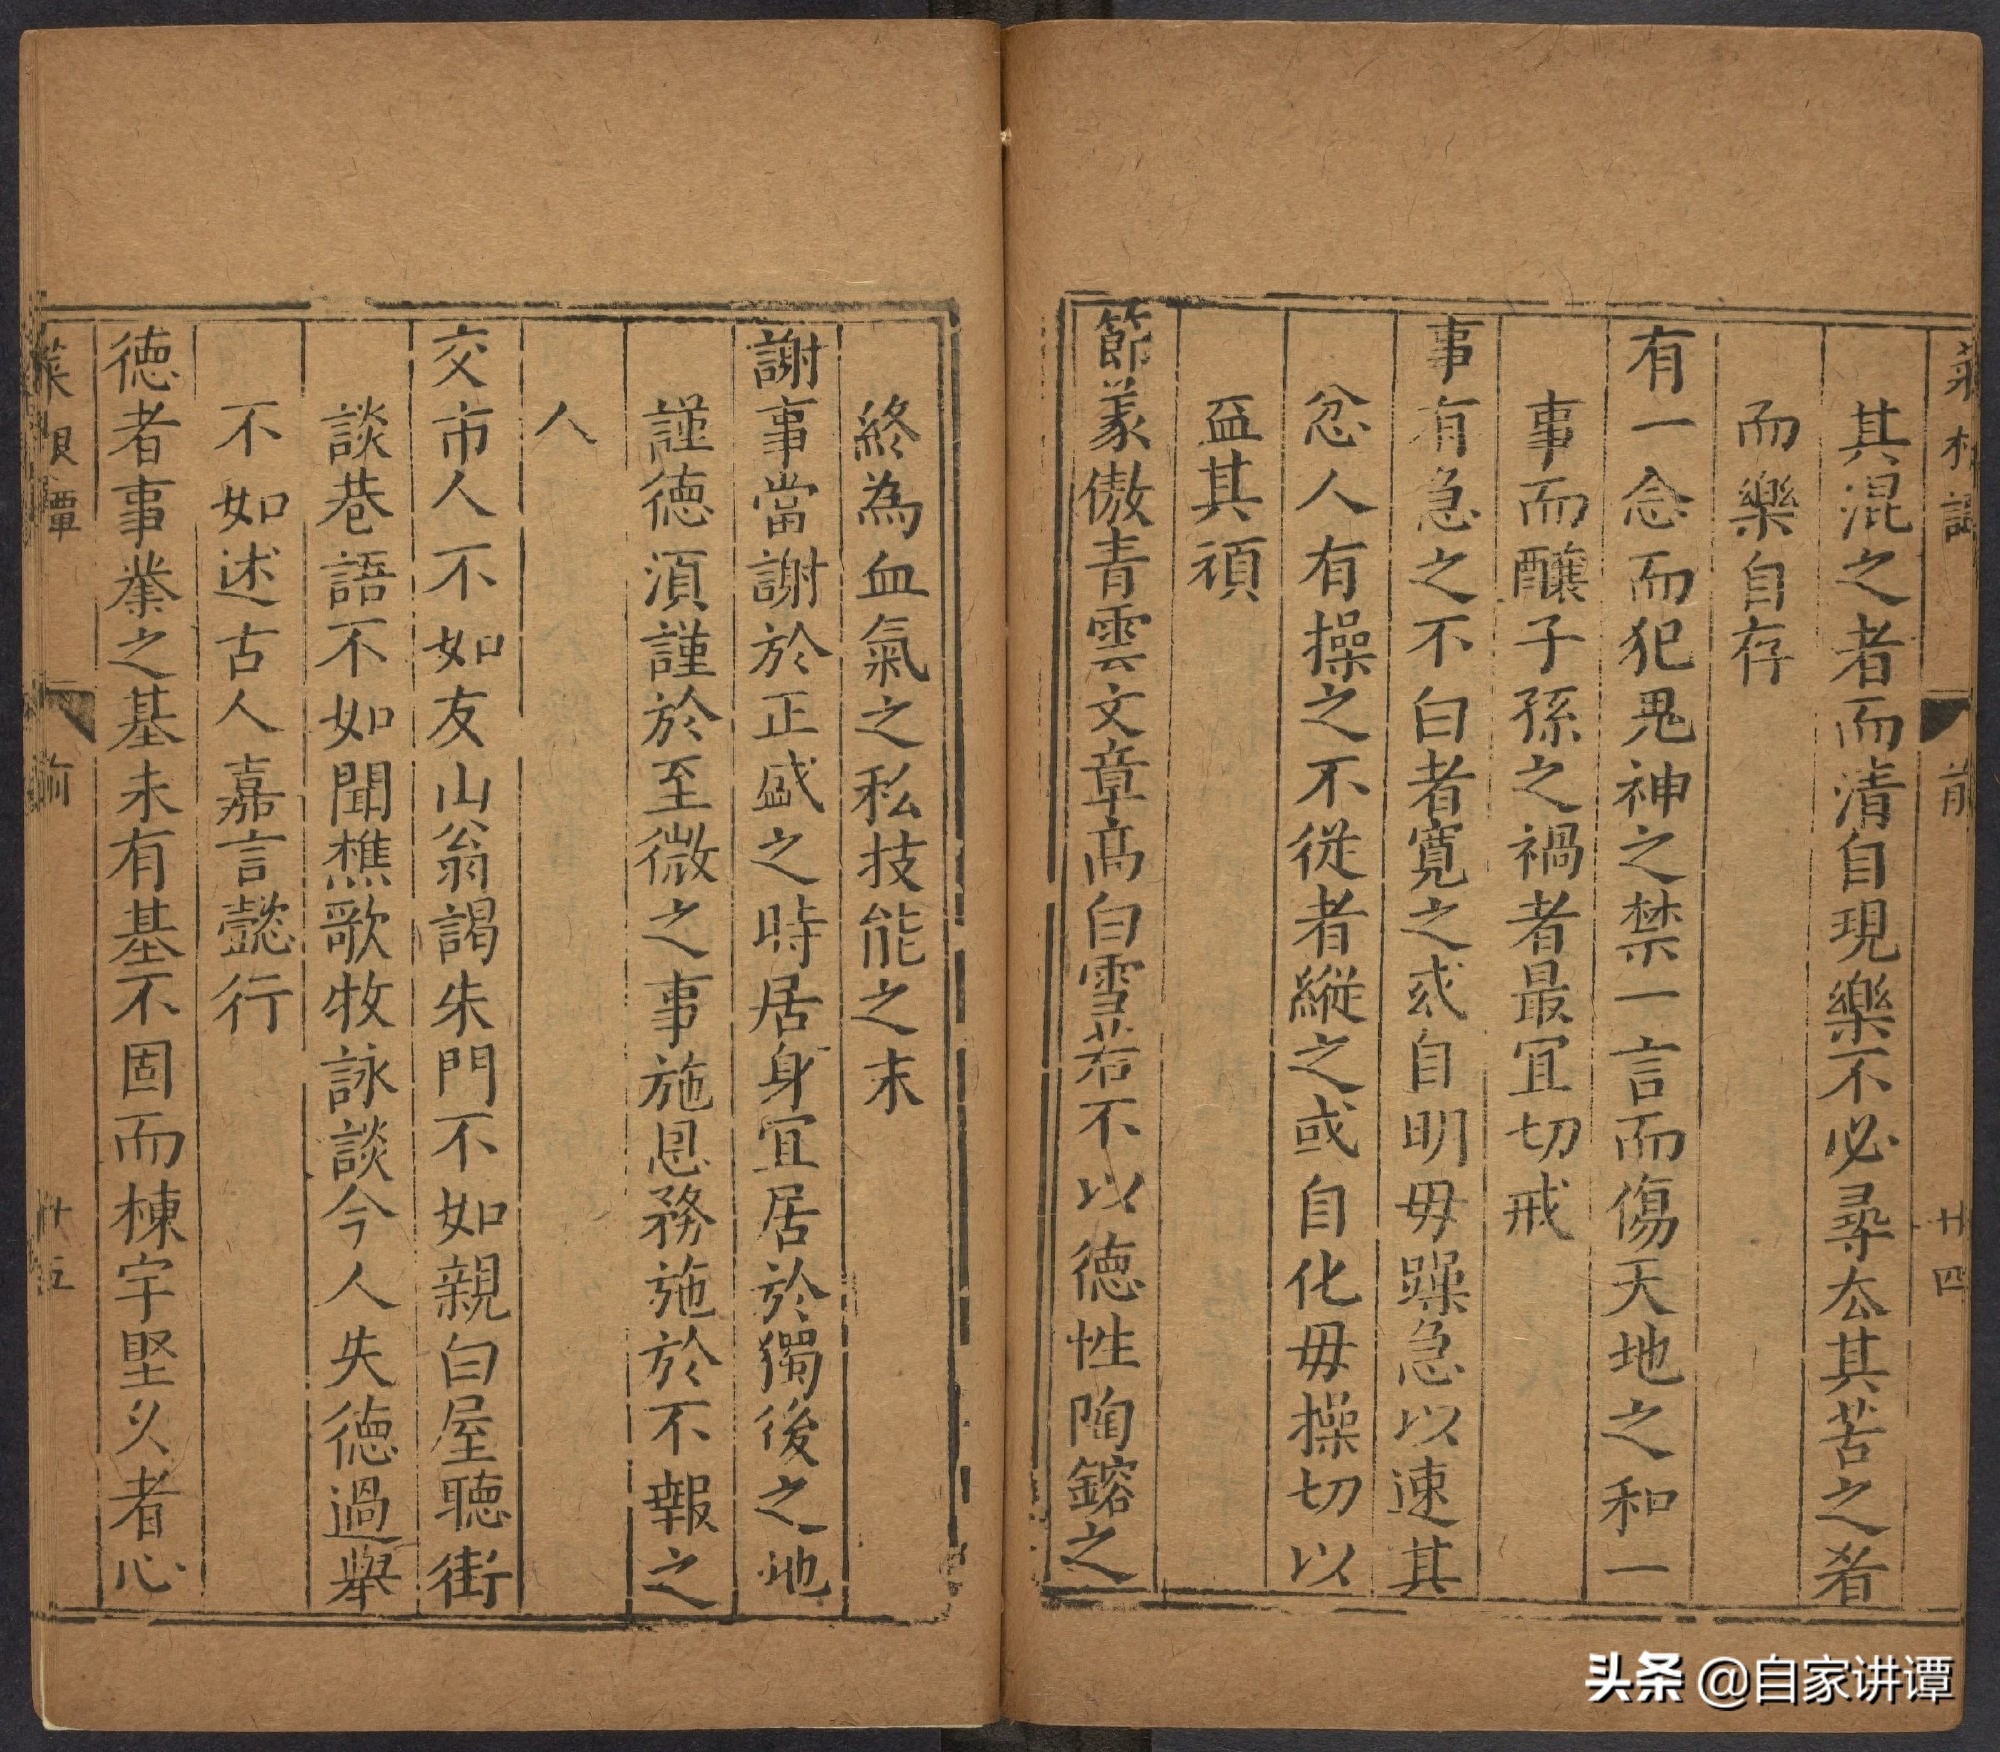 菜根譚
前
廿四
其混之者而清自現樂不必尋厺其苦之者
而樂自存
有一念而犯鬼神之禁一言而傷天地之和一
事而釀子孫之禍者最宜切戒
事有急之不白者寬之或自明毋躁急以速其
忿人有操之不從者縱之或自化毋操切以
益其頑
節義傲青雲文章高白雪若不以德性陶鎔之
終為血氣之私技能之末
謝事當謝於正盛之時居身宜居於獨後之地
謹德須謹於至微之事施恩務施於不報之
人
交市人不如友山翁謁朱門不如親白屋聽街
談巷語不如聞樵歌牧詠談今人失德過舉
不如述古人嘉言懿行
德者事業之基未有基不固而棟宇堅久者心
菜根譚
前
廿五
头条 @自家讲谭